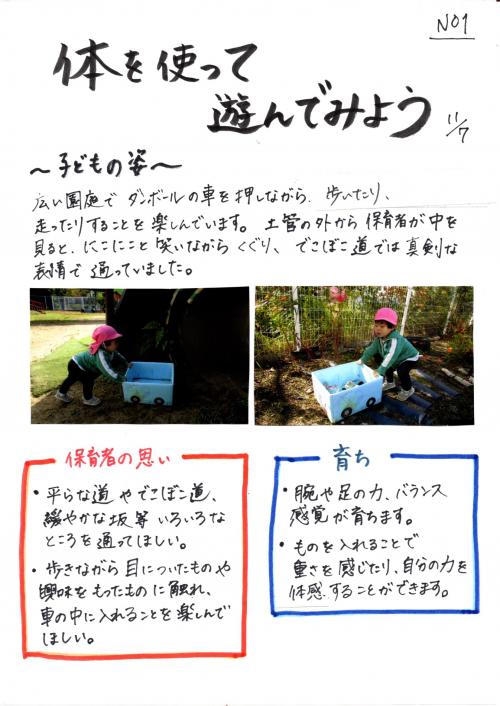 NO1
体を使って
遊んでみよう
11/7
～子どもの姿～
広い園庭で ダンボールの車を押しながら、歩いたり、
走ったりすることを楽しんでいます。土管の外から保育者が中を
見ると、にこにこと笑いながらくぐり、でこぼこ道では真剣な
表情で通っていました。
保育者の思い
・平らな道やでこぼこ道、
緩やかな坂等いろいろな
ところを通ってほしい。
・歩きながら目についたものや
興味をもったものに触れ、
車の中に入れることを楽しんで
ほしい。
育ち
・腕や足の力、バランス
感覚が育ちます。
・ものを入れることで
重さを感じたり、自分の力を
体感することができます。